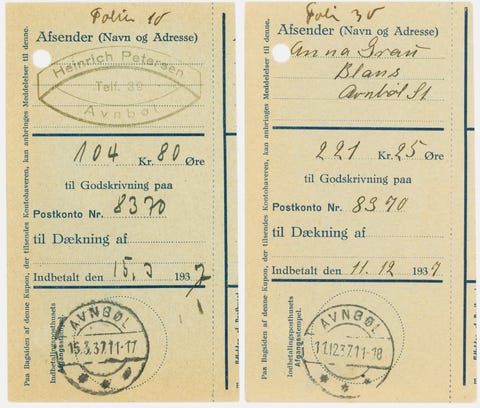 Folio 10
Afsender (Navn og Adresse)
Heinrich Petersen
Telf. 39
Avnbøl
104 Kr. 80 Øre
til Godskrivning paa
Postkonto Nr. 8370
til Dækning af
Indbetalt den 15.3 1937
AVNBØL
15.3.37.11-17
Indbetalingsposthusets
Afgangsstempel.
Paa Bagsiden af denne Kupon, der tilsendes Kontohaveren, kan anbringes Meddelelser til denne.
Folio 30
Afsender (Navn og Adresse)
Anna Grau
Blans
Avnbøl St
221 Kr. 25 Øre
til Godskrivning paa
Postkonto Nr. 8370
til Dækning af
Indbetalt den 11.12 1937
AVNBØL
11.12.37.11-18
Indbetalingsposthusets
Afgangsstempel.
Paa Bagsiden af denne Kupon, der tilsendes Kontohaveren, kan anbringes Meddelelser til denne.